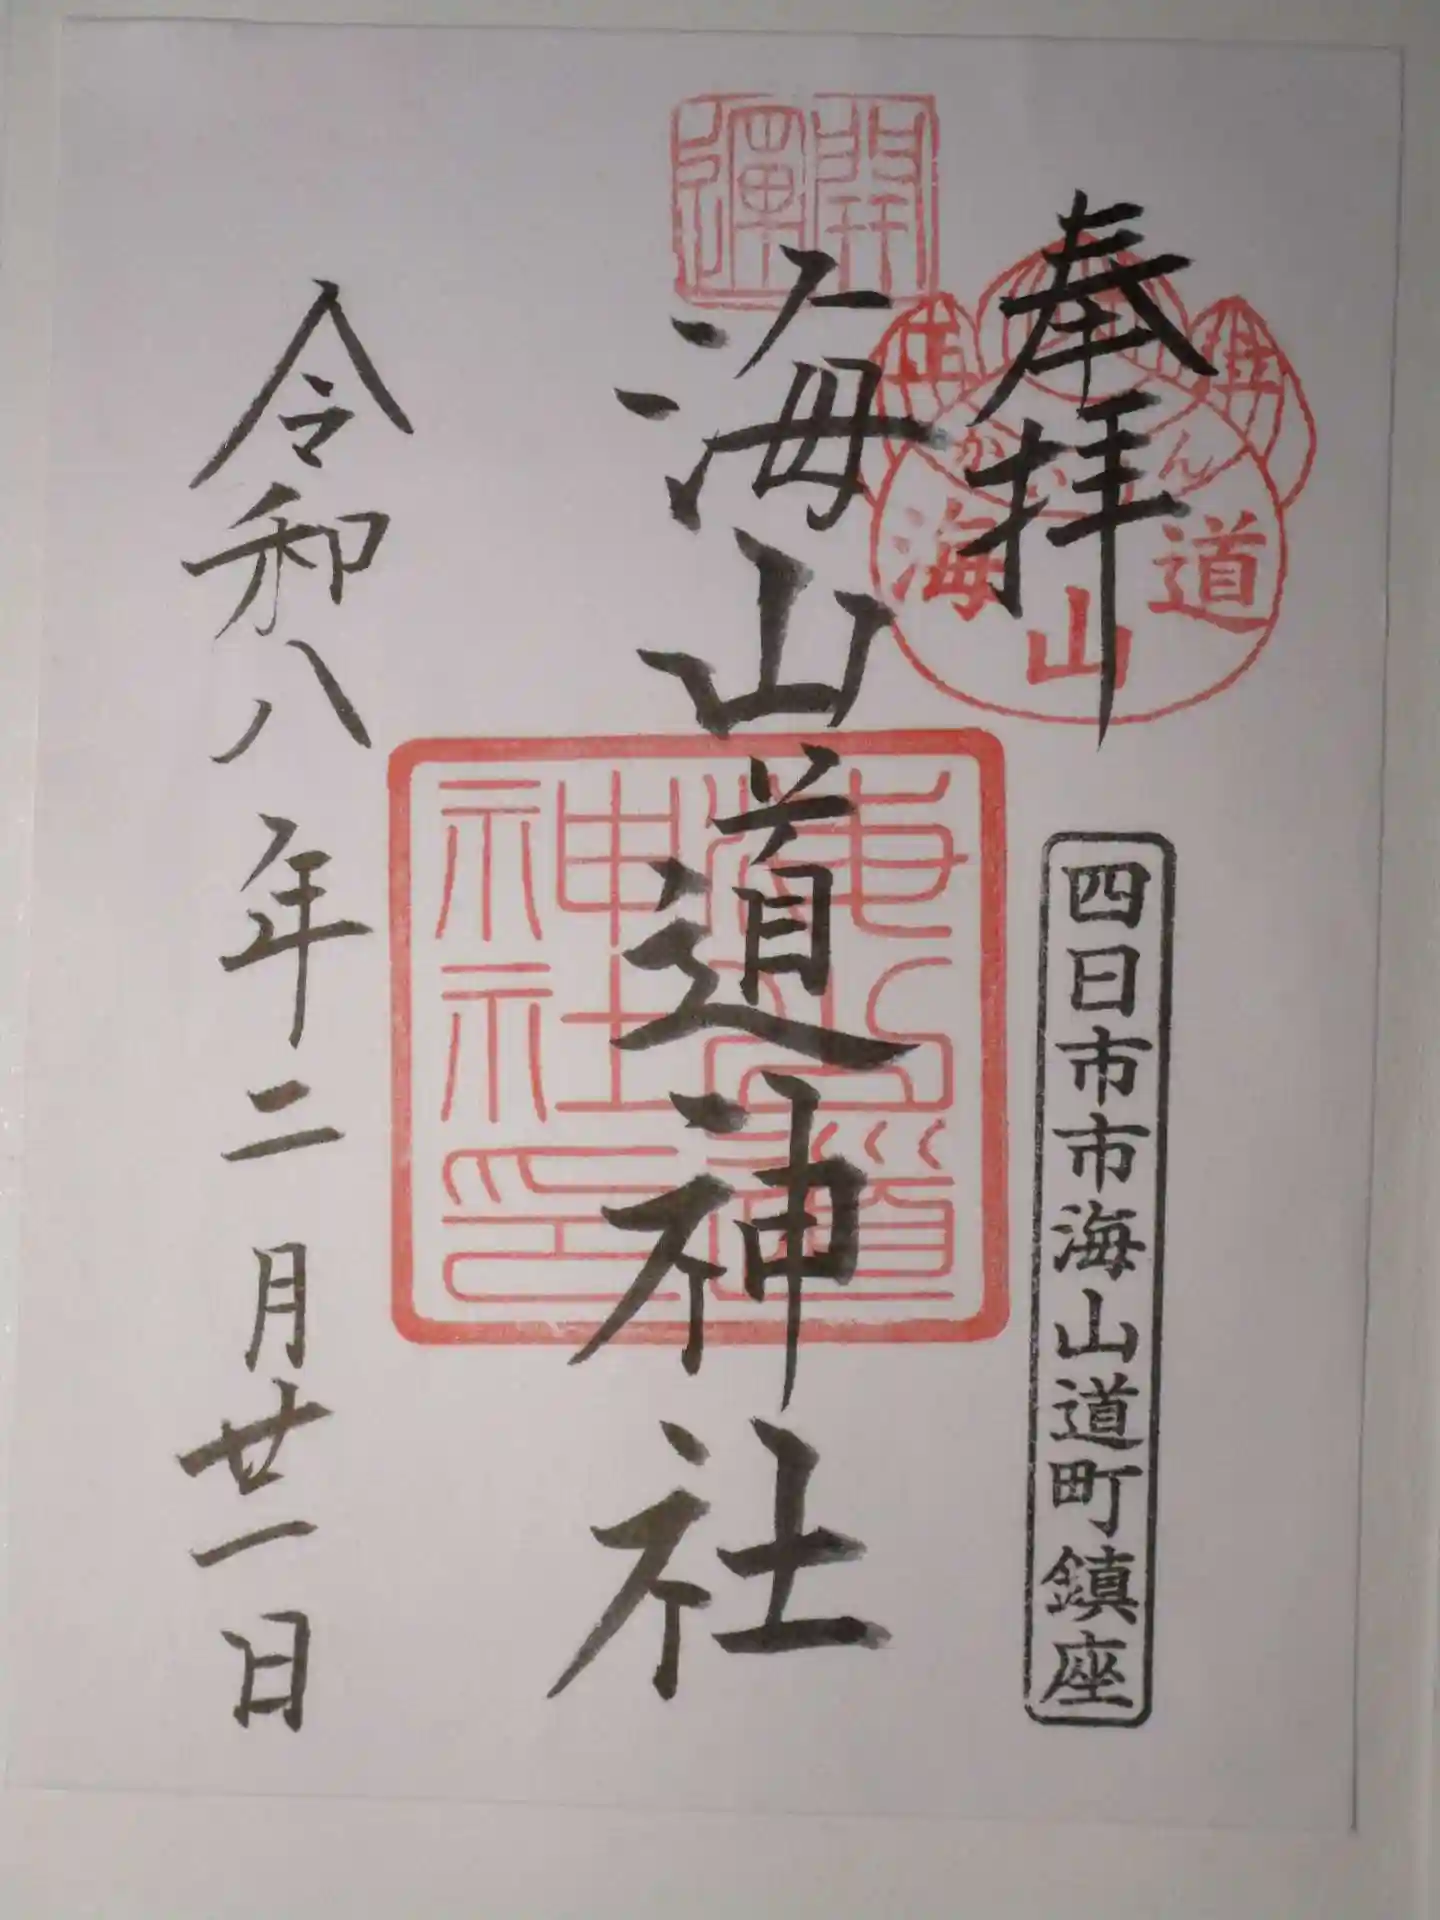 奉拝
海山道
四日市市海山道町鎮座
開運
海山道神社
海山道神社印
令和八年二月廿一日